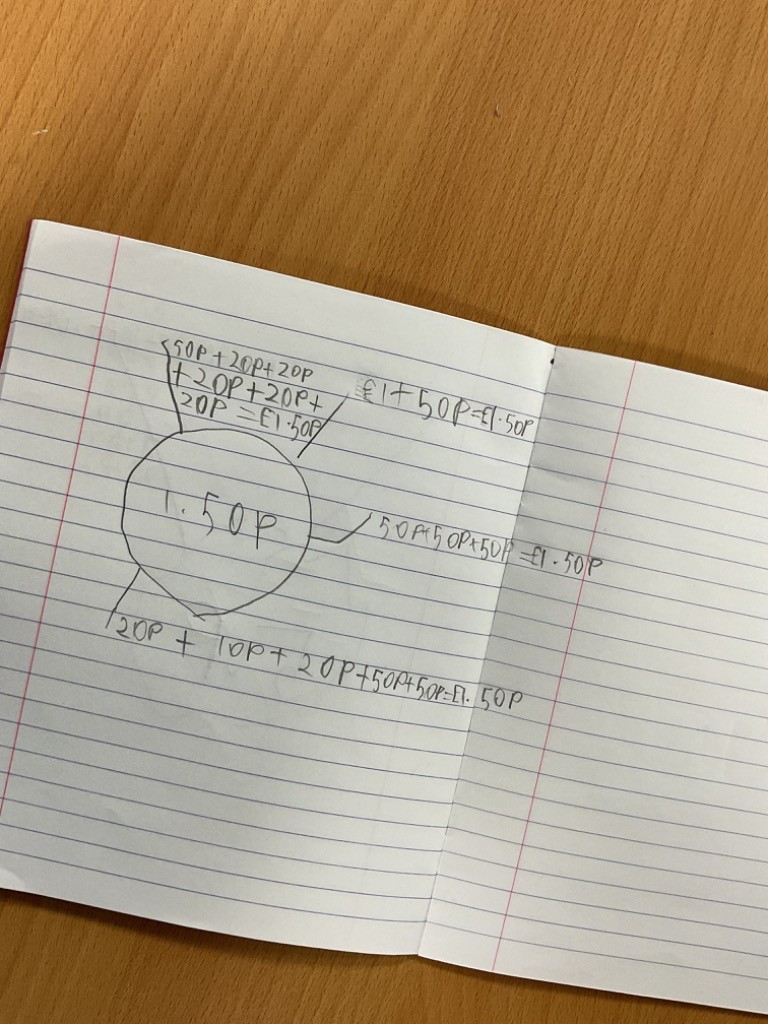 50P + 20P + 20P
+ 20P + 20P +
20P = £1.50P
£1 + 50P = £1.50P
1.50P
50P + 50P + 50P = £1.50P
20P + 10P + 20P + 50P + 50P = £1.50P